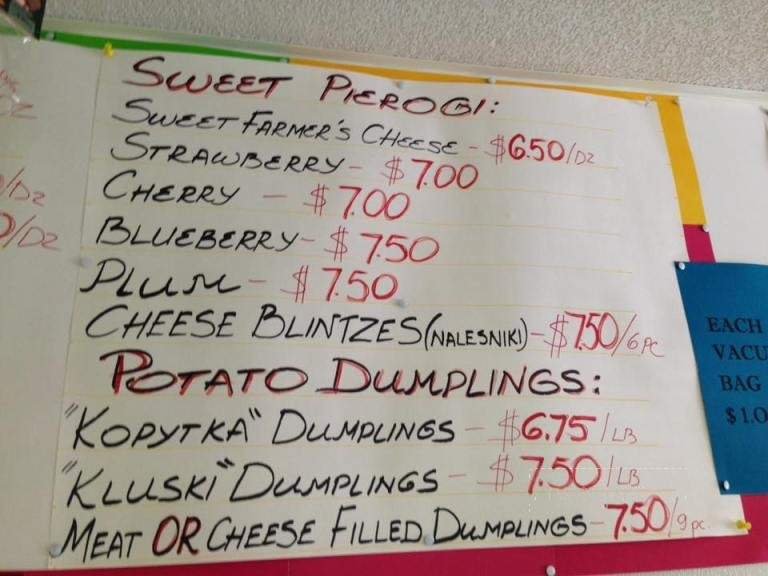 SWEET PIEROGI:
SWEET FARMER'S CHEESE - $6.50/DZ
STRAWBERRY - $7.00
CHERRY - $7.00
BLUEBERRY - $7.50
PLUM - $7.50
CHEESE BLINTZES (NALESNIKI) - $7.50/6PC
POTATO DUMPLINGS:
"KOPYTKA" DUMPLINGS - $6.75/LB
"KLUSKI" DUMPLINGS - $7.50/LB
MEAT OR CHEESE FILLED DUMPLINGS - 7.50/9pc.
/DZ
/DZ
EACH
VACU
BAG
$1.0